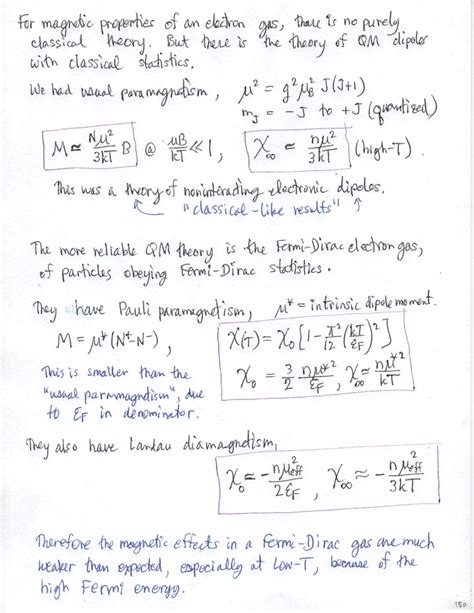 For magnetic properties of an electron gas, there is no purely
classical theory. But there is the theory of QM dipoles
with classical statistics.
We had usual paramagnetism, μ² = g²μ_B² J(J+1)
m_J = -J to +J (quantized)
M ≃ Nμ²/3kT B @ μB/kT ≪ 1, χ_∞ ≃ nμ²/3kT (high-T).
This was a theory of noninteracting electronic dipoles.
"classical-like results"
The more reliable QM theory is the Fermi-Dirac electron gas,
of particles obeying Fermi-Dirac statistics.
They have Pauli paramagnetism, μ* = intrinsic dipole moment.
M = μ*(N⁺-N⁻), χ(T) = χ₀[1 - π²/12 (kT/ε_F)²]
This is smaller than the χ₀ = 3/2 nμ*²/ε_F, χ_∞ ≃ nμ*²/kT
"usual paramagnetism", due
to ε_F in denominator.
They also have Landau diamagnetism,
χ₀ ≈ -nμ_eff²/2ε_F, χ_∞ ≈ -nμ_eff²/3kT
Therefore the magnetic effects in a Fermi-Dirac gas are much
weaker than expected, especially at low-T, because of the
high Fermi energy.